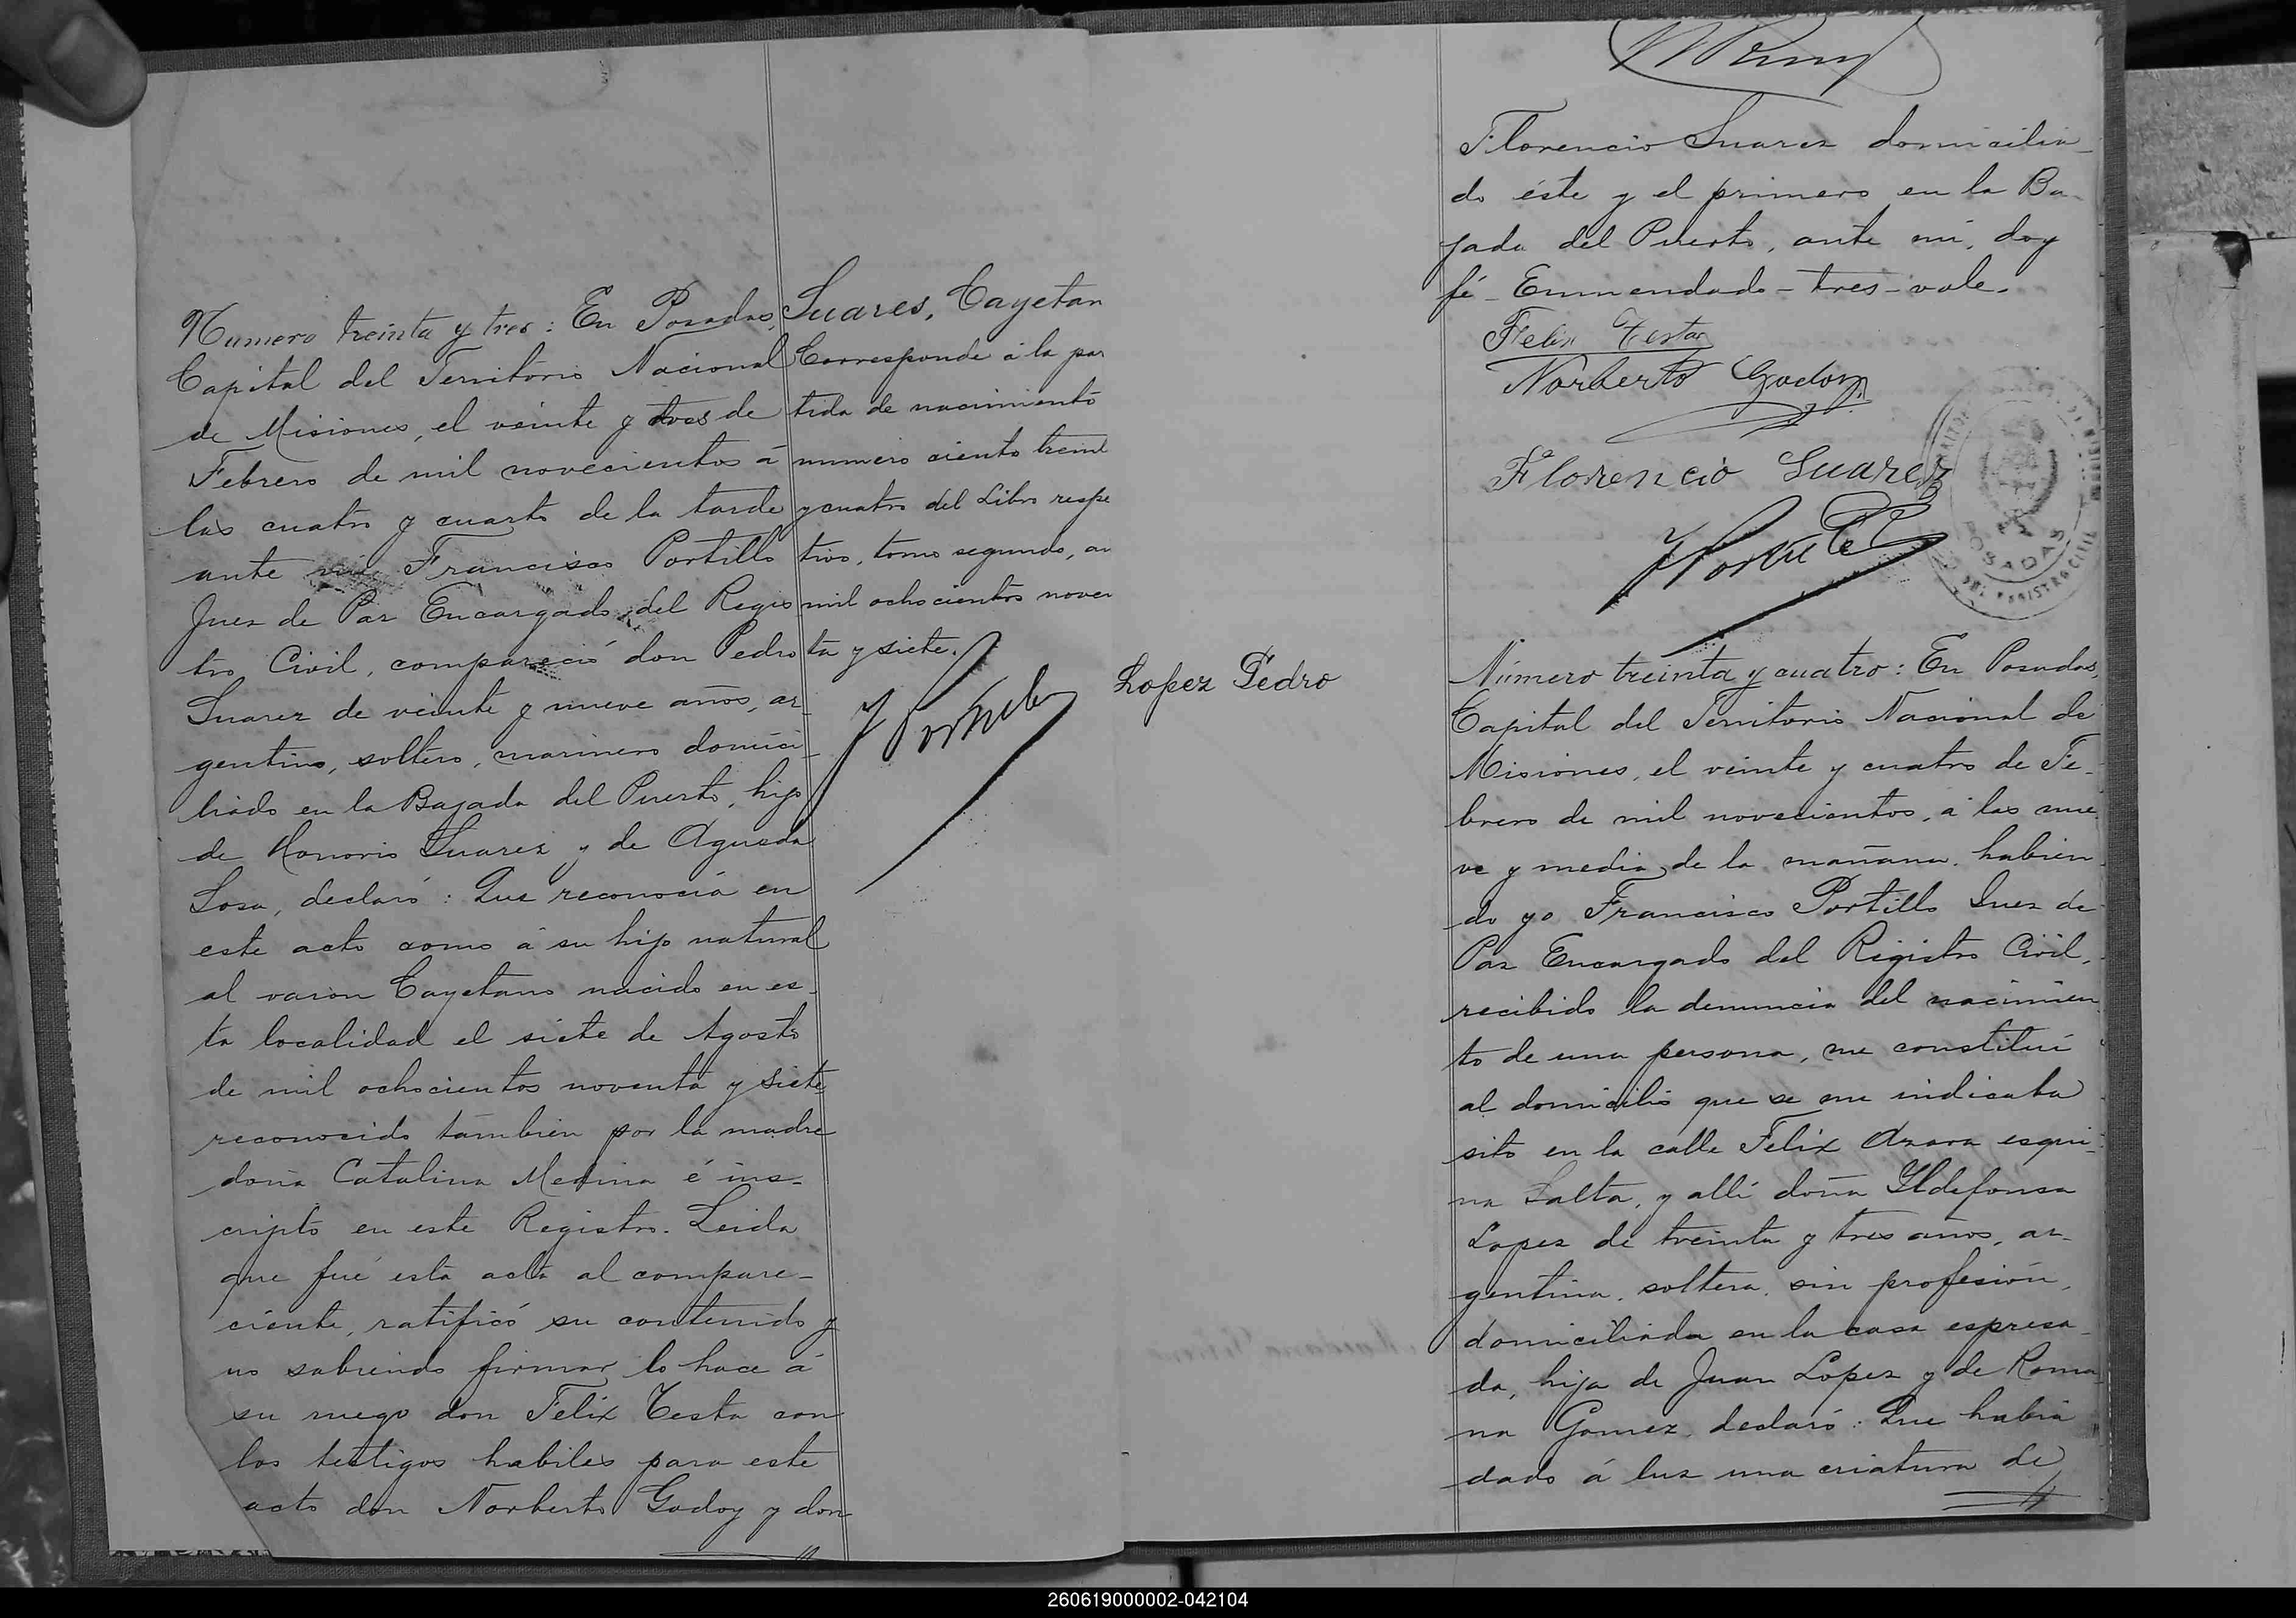 Numero treinta y tres: En Posadas,
Capital del Territorio Nacional
de Misiones, el veinte y tres de
Febrero de mil novecientos á
las cuatro y cuarto de la tarde
ante mí Francisco Portillo
Juez de Paz Encargado del Regis
tro Civil, compareció don Pedro
Suarez de veinte y nueve años, ar-
gentino, soltero, marinero domici-
liado en la Bajada del Puerto, hijo
de Honorio Suarez y de Agueda
Sosa, declaró: Que reconocía en
este acto como á su hijo natural
al varon Cayetano nacido en es-
ta localidad el siete de Agosto
de mil ochocientos noventa y siete,
reconocido tambien por la madre
doña Catalina Medina é ins-
cripto en este Registro. Leida
que fué esta acta al compare-
ciente, ratificó su contenido y
no sabiendo firmar lo hace á
su ruego don Felix Testa con
los testigos habiles para este
acto don Norberto Godoy y don
Suares, Cayetan
Corresponde á la par
tida de nacimiento
numero ciento treint
y cuatro del Libro respe
tivo, tomo segundo, añ
mil ochocientos noven
ta y siete.
F Portillo
Florencio Suarez domicilia-
do éste y el primero en la Ba-
jada del Puerto, ante mi, doy
fé - Enmendado - tres - vale.
Felix Testa
Norberto Godoy
Florencio Suarez
F Portillo
POSADAS
REGISTRO CIVIL
Lopez Pedro
Número treinta y cuatro: En Posadas,
Capital del Territorio Nacional de
Misiones, el veinte y cuatro de Fe-
brero de mil novecientos, á las nue
ve y media de la mañana, habien
do yo Francisco Portillo Juez de
Paz Encargado del Registro Civil,
recibido la denuncia del nacimien
to de una persona, me constituí
al domicilio que se me indicaba
sito en la calle Felix Azara esqui-
na Salta, y allí doña Ildefonsa
Lopez de treinta y tres años, ar-
gentina, soltera, sin profesión,
domiciliada en la casa espresa-
da, hija de Juan Lopez y de Roma
na Gomez, declaró: Que habia
dado á luz una criatura de
260619000002-042104